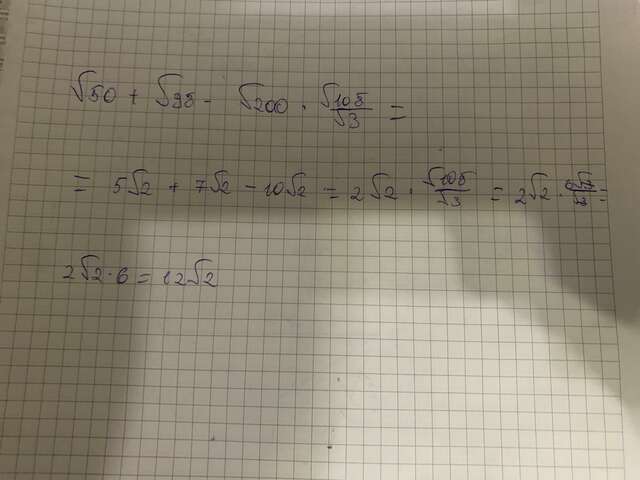 √50 + √98 - √200 · √108/√3 =
= 5√2 + 7√2 - 10√2 = 2√2 · √108/√3 = 2√2 · 6√3/√3 =
2√2 · 6 = 12√2